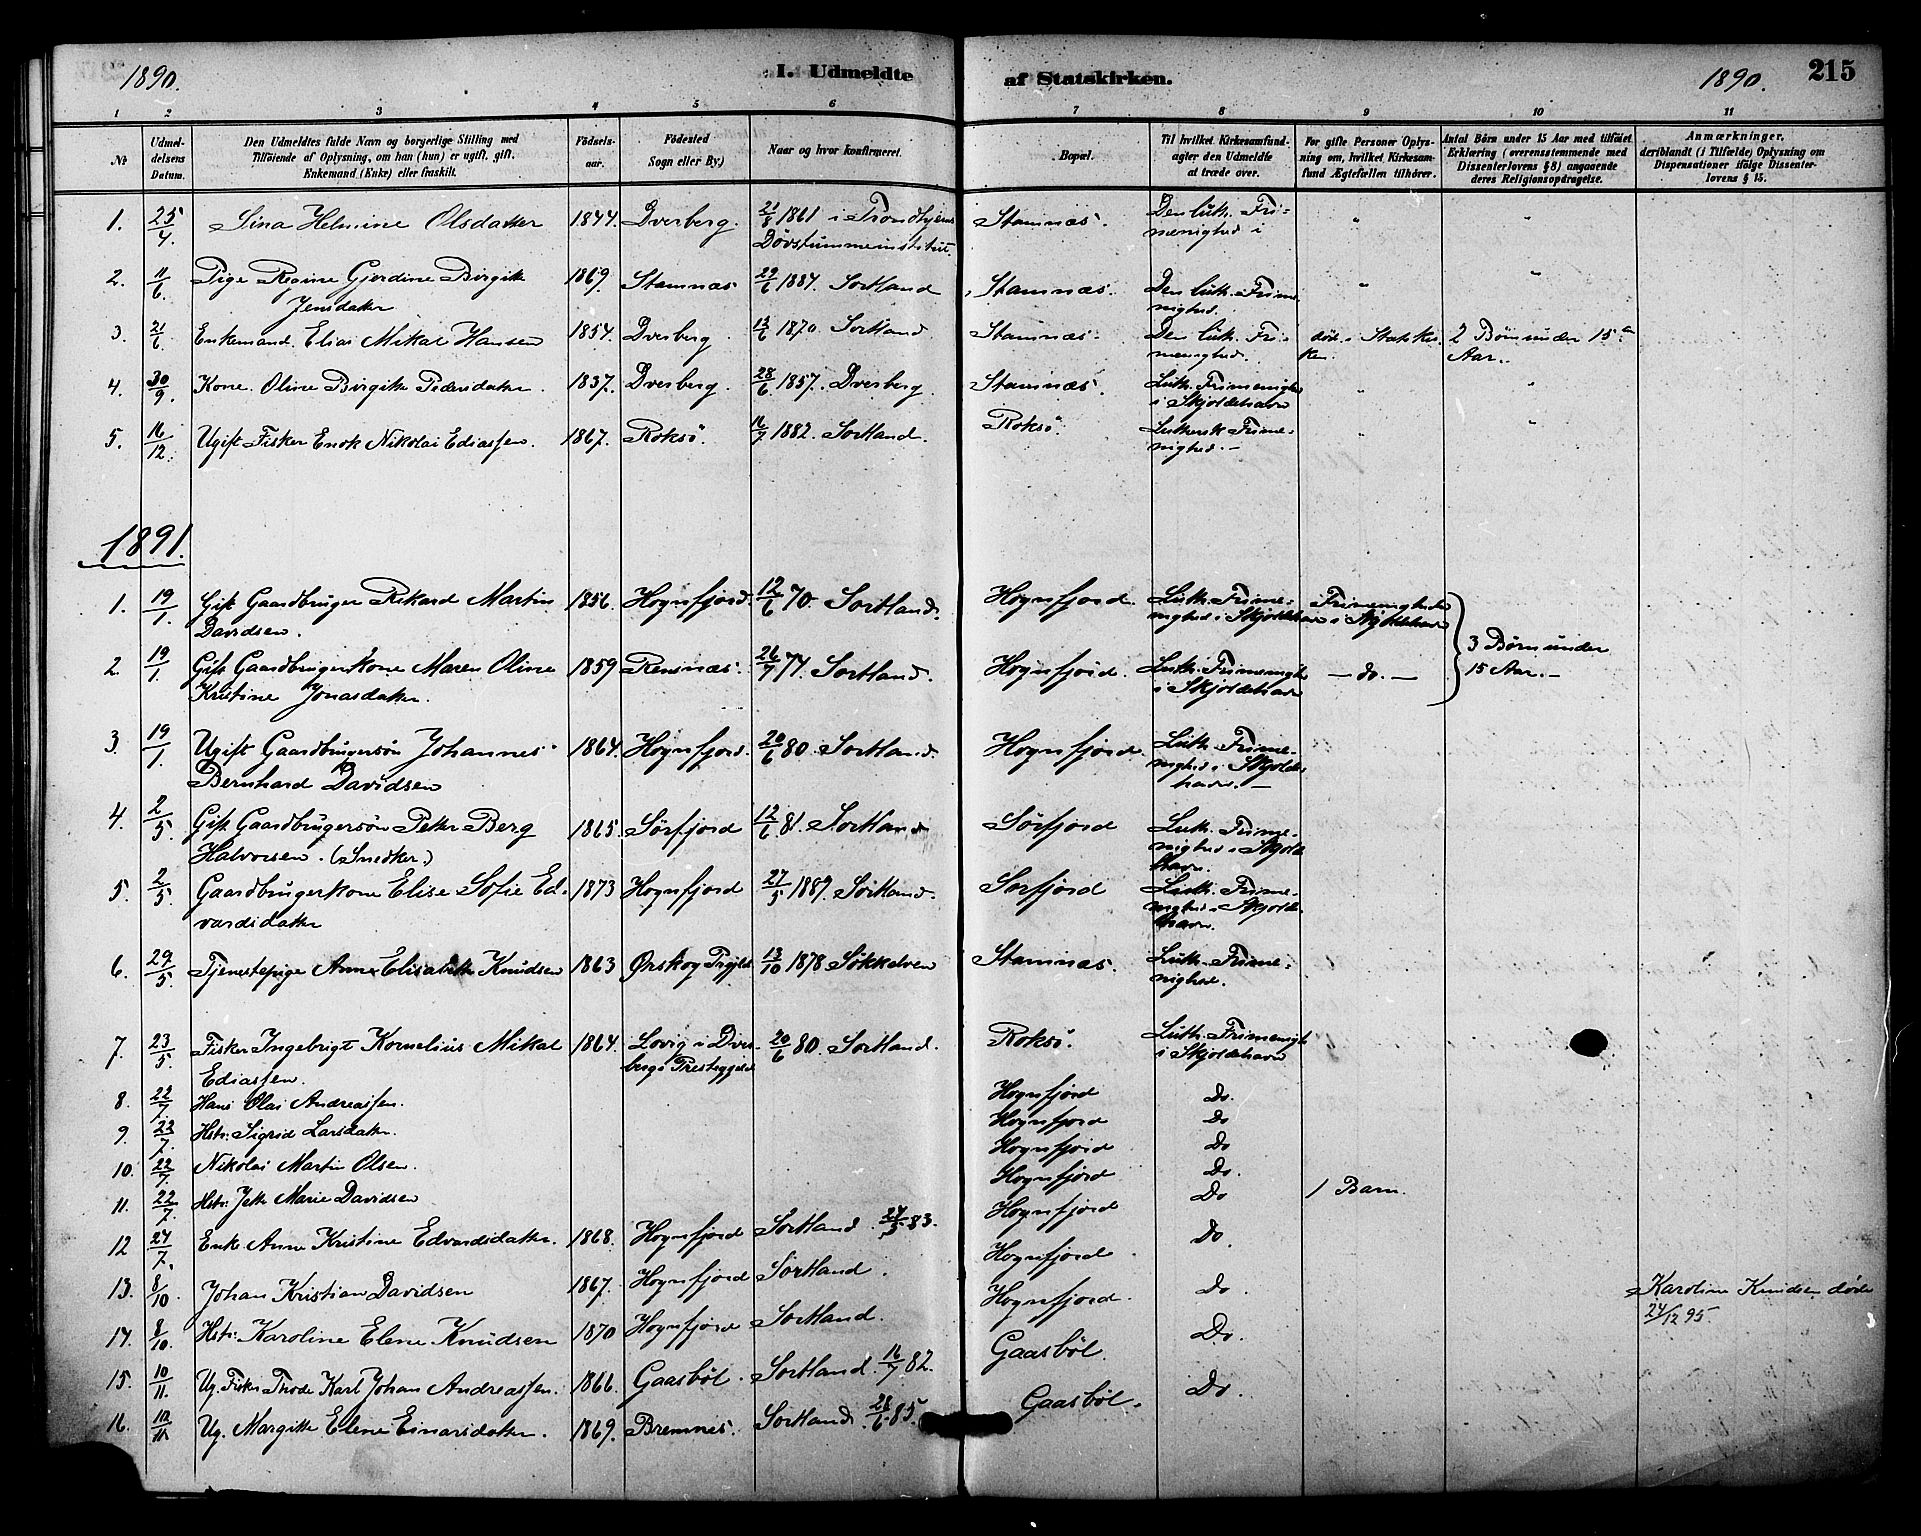 1890. I. Udmeldte af Statskirken. 1890. 215
1 2 3 4 5 6 7 8 9 10 11
No
Udmeldelsens Datum.
Den Udmeldtes fulde Navn og borgerlige Stilling med
Tilføiende af Oplysning, om han (hun) er ugift, gift,
Enkemand (Enke) eller fraskilt.
Fødselsaar.
Fødested
Sogn eller By)
Naar og hvor konfirmeret.
Bopæl.
Til hvilket Kirkesamfund-
agter den Udmeldte
at træde over.
For gifte Personer Oplys-
ning om, hvilket Kirkesam-
fund Ægtefællen tilhører.
Antal Børn under 15 Aar med tilføiet
Erklæring (overensstemmende med
Dissenterlovens § 8) angaaende
deres Religionsopdragelse.
Anmærkninger,
deriblandt (i Tilfælde) Oplysning om
Dispensationer ifølge Dissenter-
lovens § 15.
1. 25/4 Sina Helmine Olsdatter 1844. Dverberg. 21/8 1861 i Trondhjems Stamnæs. Den luth. Fri- " "
Døvstummeinstitut. menighed i
2. 11/6 Pige Regine Gjerdine Birgitte 1869. Stamnæs 29/6 1884. Sortland Stamnæs. Den luth. Frime- " "
Jensdatter nighed.
3. 21/6 Enkemand Elias Mikal Hansen 1854. Dverberg 12/6 1870. Sortland. Stamnæs. Den luth. Fri- død i Statskir- 2 Børn under 15
menighed. ken. Aar.
4. 30/9 Kone Oline Birgitte Pedersdatter. 1837. Dverberg. 28/6 1857. Dverberg. Stamnæs. Luth. Frimenighed " "
i Skjoldehavn
5. 16/12. Ugift Fisker Enok Nikolai Ediassen. 1867. Roksö. 16/7 1882. Sortland. Roksö. Luthersk Frime- " "
nighed.
1891.
1. 19/1 Gift Gaardbruger Rikard Martin 1856. Hognfjord. 12/6 70. Sortland. Hognfjord. Luth. Frime- Frimenigheden
Davidsen. nighed i Skjoldehavn i Skjoldehavn
2. 19/1 Gift Gaardbrugerkone Maren Oline 1859 Rensnæs. 26/7 74. Sortland. Hognfjord. Luth. Frimenighed — do. — 3 Børn under
Kristine Jonasdatter. i Skjoldehavn 15 Aar.
3. 19/1. Ugift Gaardbrugersön Johannes 1864. Hognfjord. 20/6 80. Sortland. Hognfjord. Luth. Frime-
Bernhard Davidsen nighed i Skjolde-
havn.
4. 2/5 Gift Gaardbrugersön Petter Berg 1865. Sörfjord 12/6 81. Sortland Sörfjord Luth. Frime-
Halvorsen. (Snedker.) nighed i Skjolde-
havn.
5. 2/5. Gaardbrugerkone Elise Sofie Ed- 1873 Hognfjord 27/5 1889. Sortland. Sörfjord Luth. Frime-
vardsdatter nighed i Skjolde-
havn.
6. 29/5. Tjenestepige Anne Elisabeth Knudsen 1863 Ørskog 13/10 1878 Søkkelven Stamnæs. Luth. Frime- "
nighed.
7. 23/5. Fisker Ingebrigt Kornelius Mikal 1864. Lovig i Dver- 20/6 80. Sortland. Roksö. Luth. Frimenigh
Ediassen. bergs Prestegjeld i Skjoldehavn
8. 22/7. Hans Olai Andreassen. Hognfjord Do.
9. 22/7. Hstr: Sigrid Larsdatter. Hognfjord Do
10. 22/7. Nikolai Martin Olsen. Hognfjord Do
11. 22/7. Hstr: Marie Davidsen Hognfjord Do. 1 Barn.
Hognfjord Do
12 24/7. Enke Anne Kristine Edvardsdatter. 1868. Hognfjord Sortland. 83. Hognfjord. Do.
13. 8/10. Johan Kristian Davidsen 1867. Hognfjord Sortland. Hognfjord. Do. Karoline Knudsen døde
24/12 95.
14. 8/10. Hstr: Karoline Elene Knudsen 1870 Hognfjord Sortland. Gaasböl. Do.
15. 10/11. Ug. Fisker Karl Johan Andreassen. 1866. Gaasböl. Sortland. 16/7 82. Gaasböl. Do.
16. 10/11 Ug. Margitte Elene Einarsdatter. 1869. Bremnes. Sortland. 28/6 85.